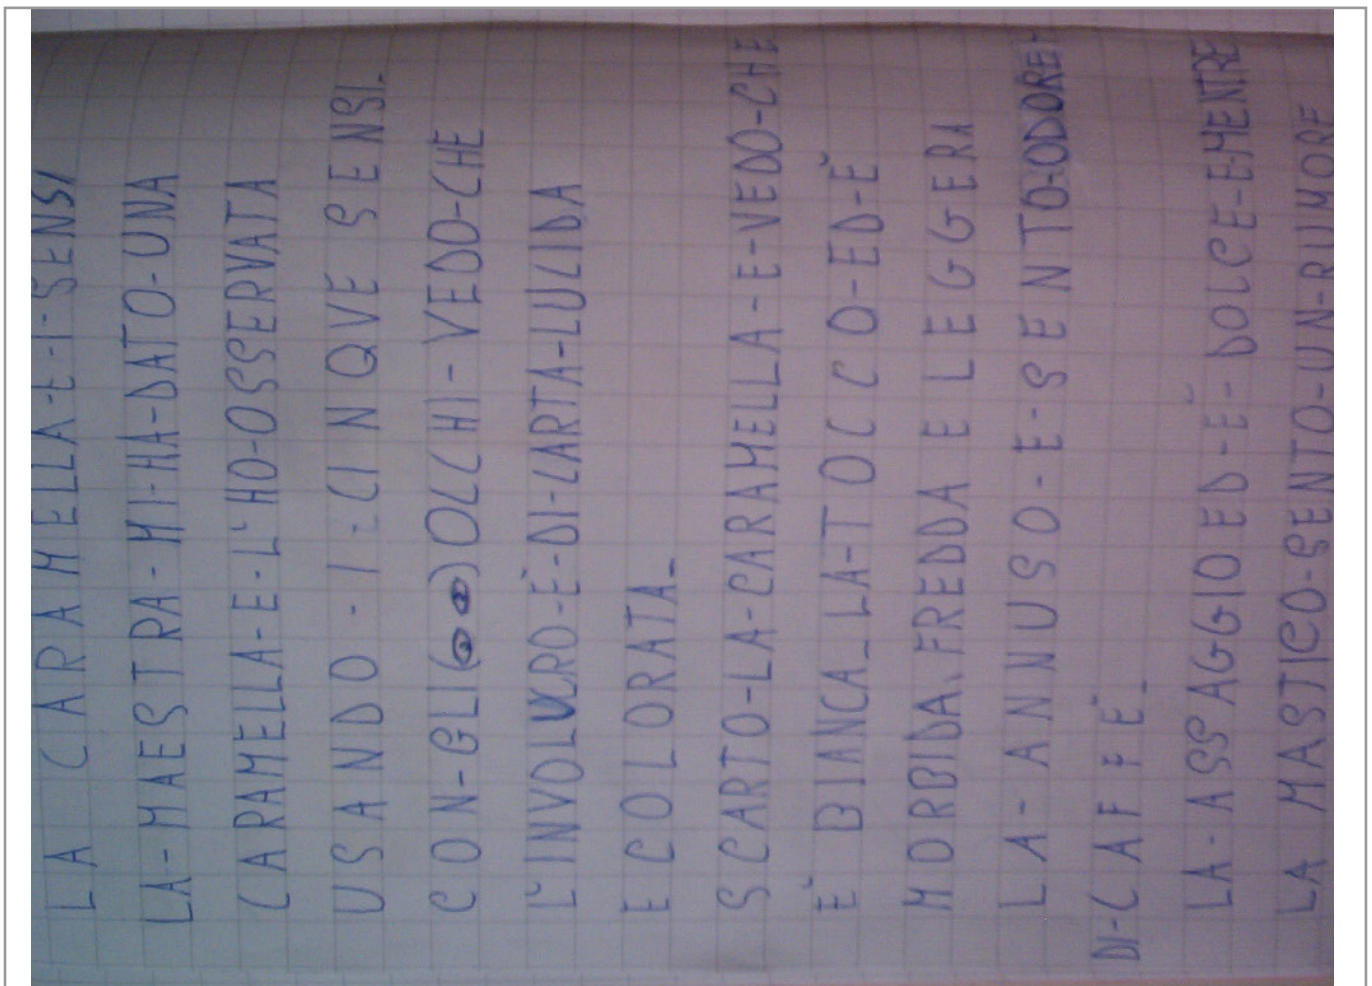 LA CARAMELLA-E-I-SENSI
LA-MAESTRA-MI-HA-DATO-UNA
CARAMELLA-E-L'HO-OSSERVATA
USANDO-I-CINQUE SENSI.
CON-GLI OCCHI-VEDO-CHE
L'INVOLUCRO-È-DI-CARTA-LUCIDA
E COLORATA_
SCARTO-LA-CARAMELLA-E-VEDO-CHE
È BIANCA_LA-TOCCO-ED-È
MORBIDA.FREDDA E LEGGERA
LA-ANNUSO-E-SENTO-ODORE
DI-CAFFÈ_
LA-ASSAGGIO ED-È-DOLCE-E-MENTRE
LA MASTICO-SENTO-UN-RUMORE